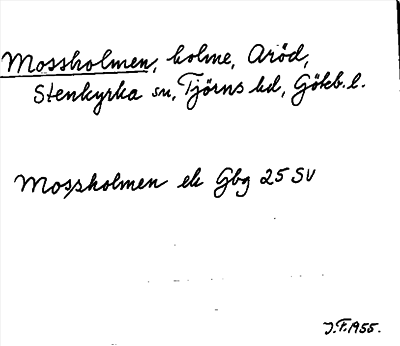 Mossholmen, holme, Aröd,
Stenkyrka sn, Tjörns hd, Gökb. l.
Mossholmen ek Gbg 25 SV
J.F. 1955.